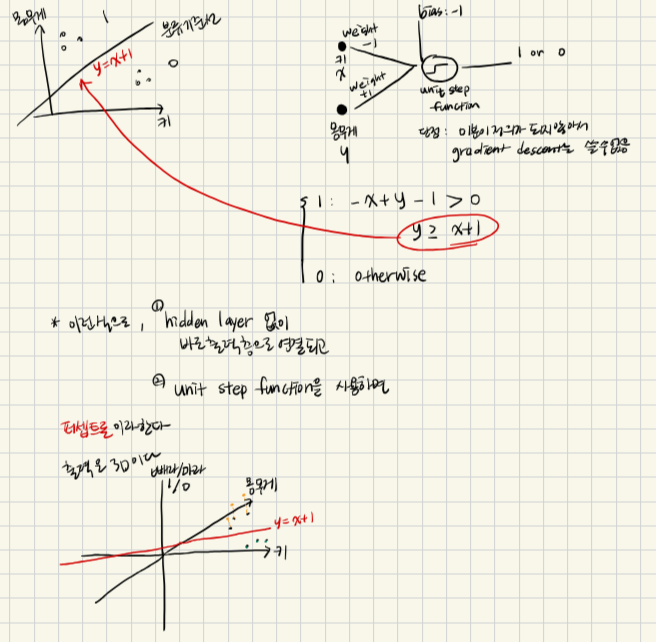 몸무게
1
분류기준선
y=x+1
0
키
bias: -1
weight
-1
키
x
weight
+1
몸무게
y
1 or 0
unit step
function
단점: 미분이 정의가 되지 않아서
gradient descent를 쓸 수 없음
1: -x+y-1 > 0
y ≥ x+1
0: otherwise
* 이런식으로, ① hidden layer 없이
바로 출력층으로 연결되고
② unit step function을 사용하면
퍼셉트론이라한다
출력은 3D이다
빼라/마라
1/0
몸무게
y=x+1
키